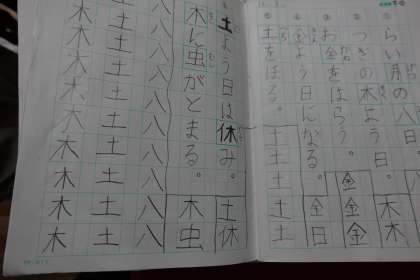 らい月の八日
木木
つぎの木よう日。
木
お金をはらう。
金金金
金よう日になる。
金日
土をほる。
土土土土土
土よう日は休み。
土休
木に虫がとまる。
木虫
八八八八八八八八八
土土土土土土土土土
木木木木木木木木木